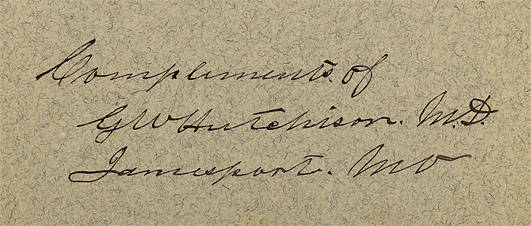 Complements. of
GW Hutchison. M.D.
Jamesport. Mo